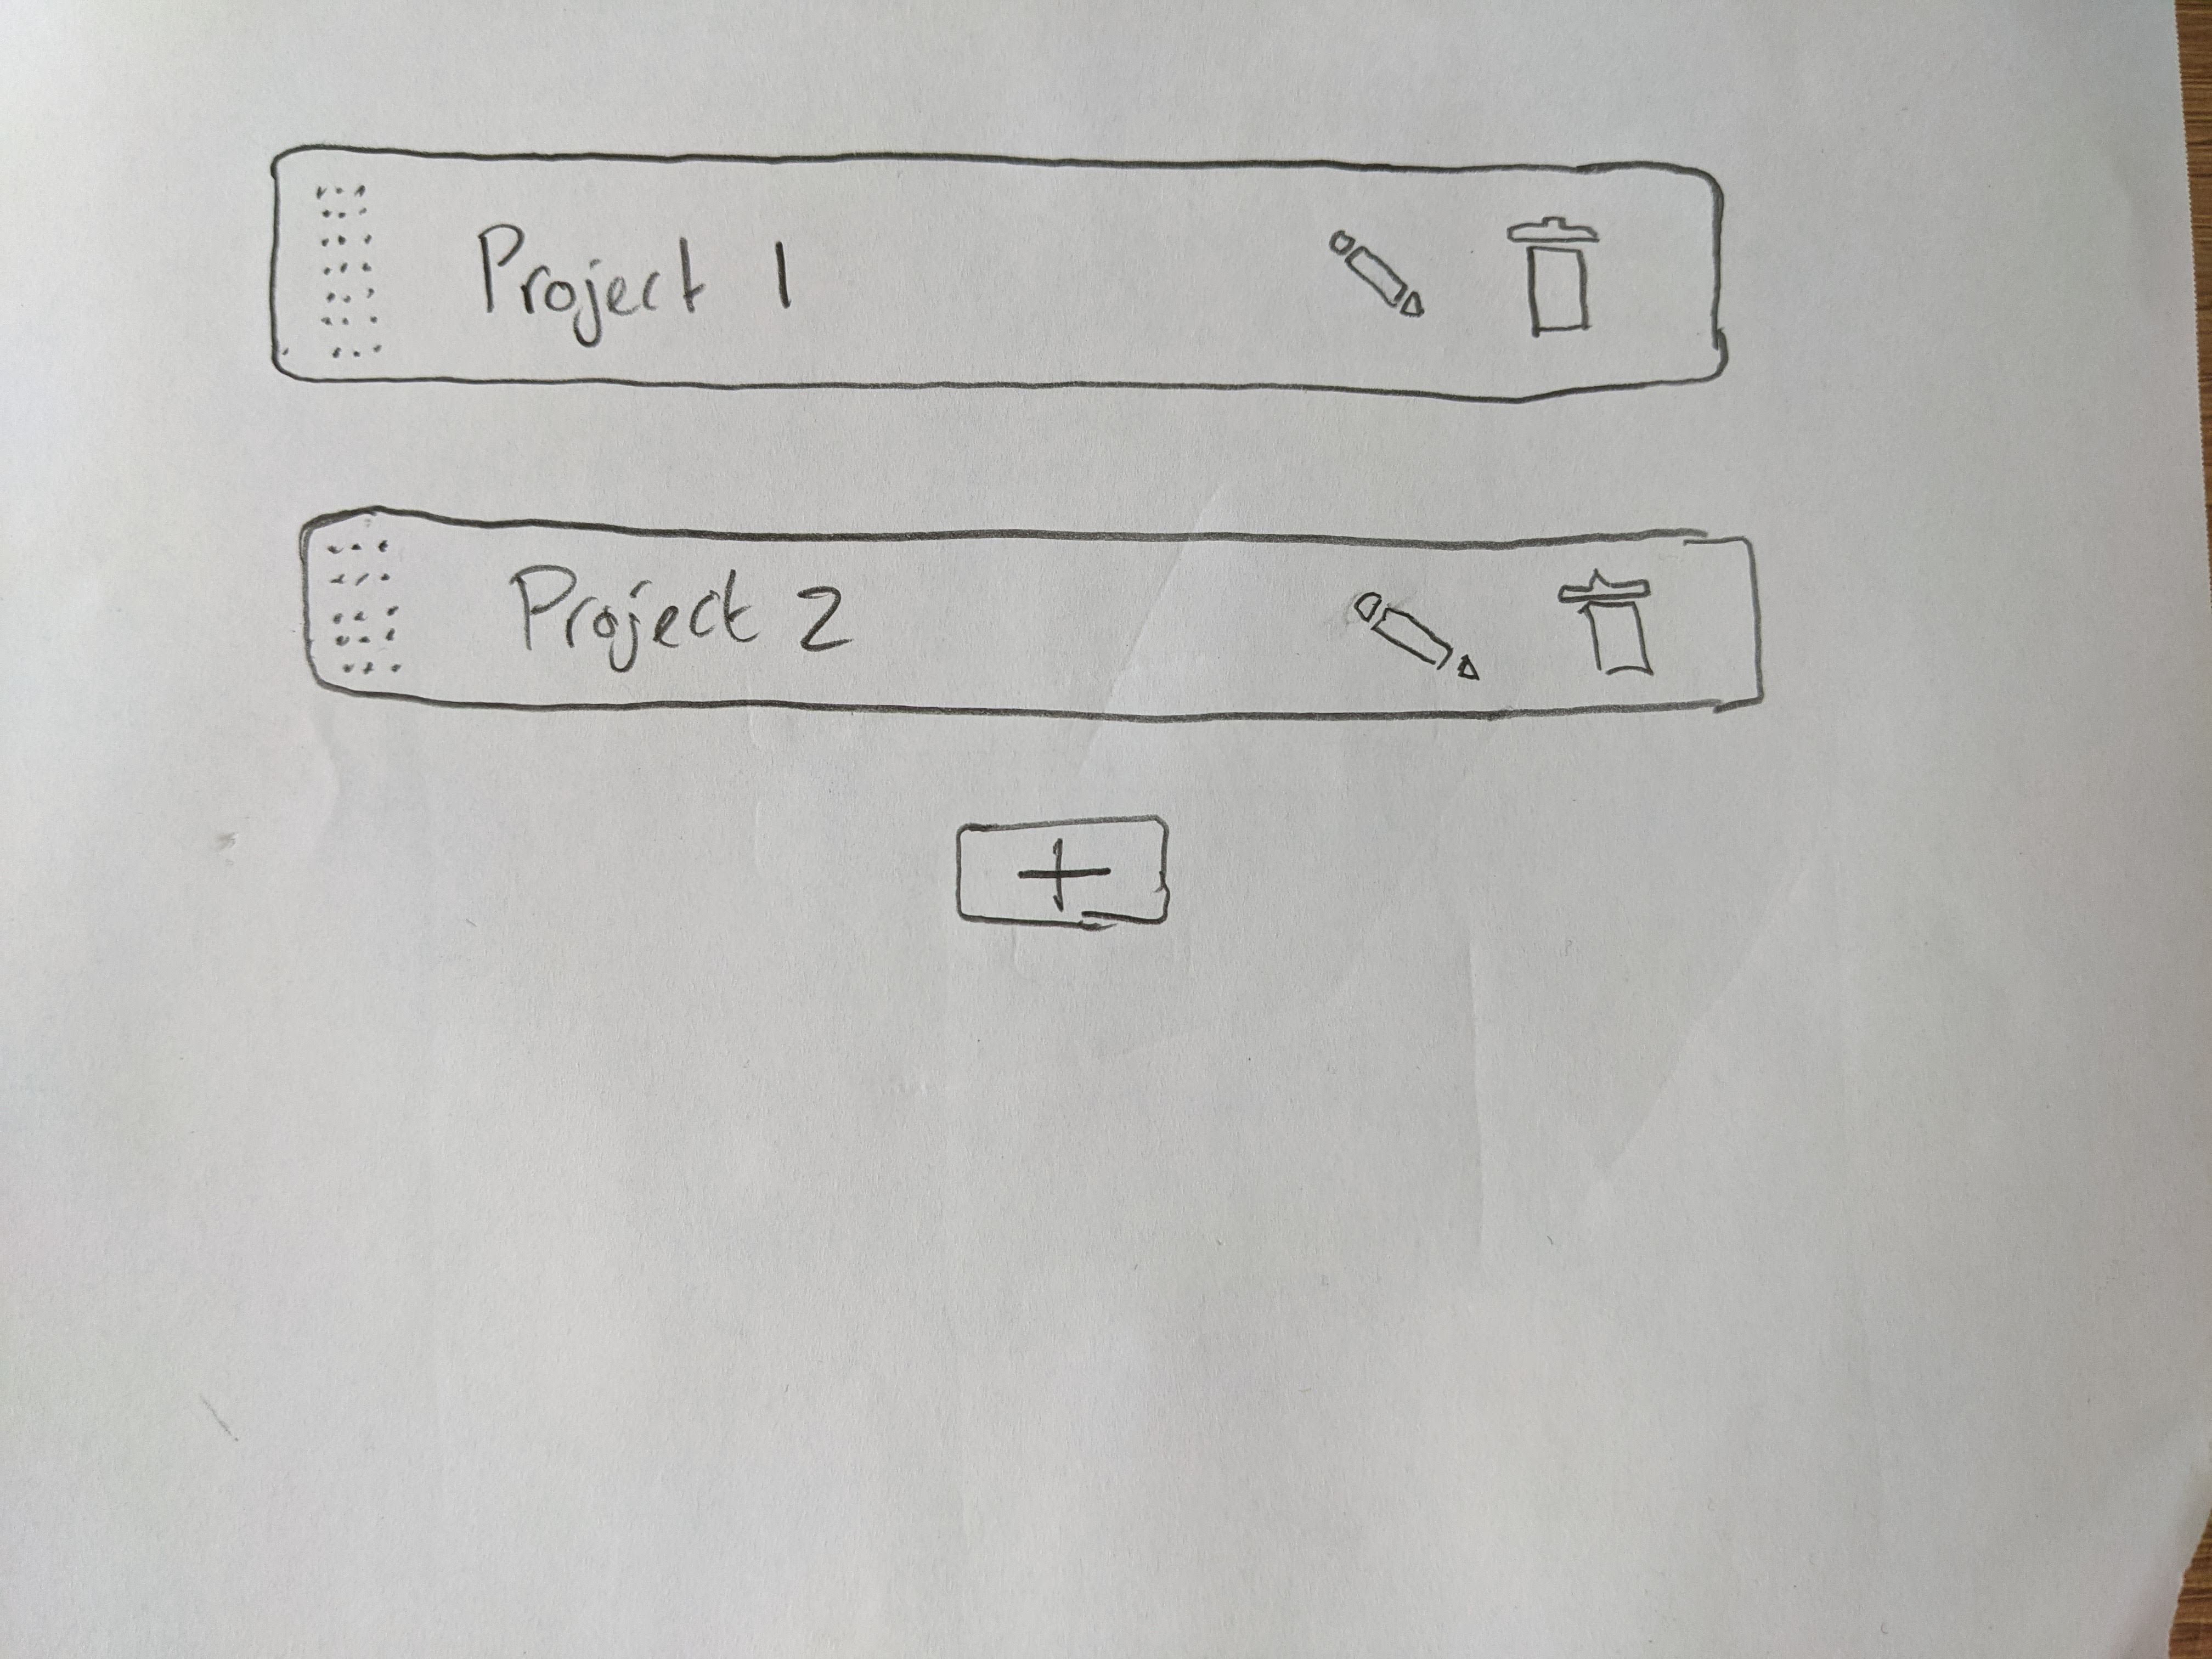 Project 1
Project 2
+